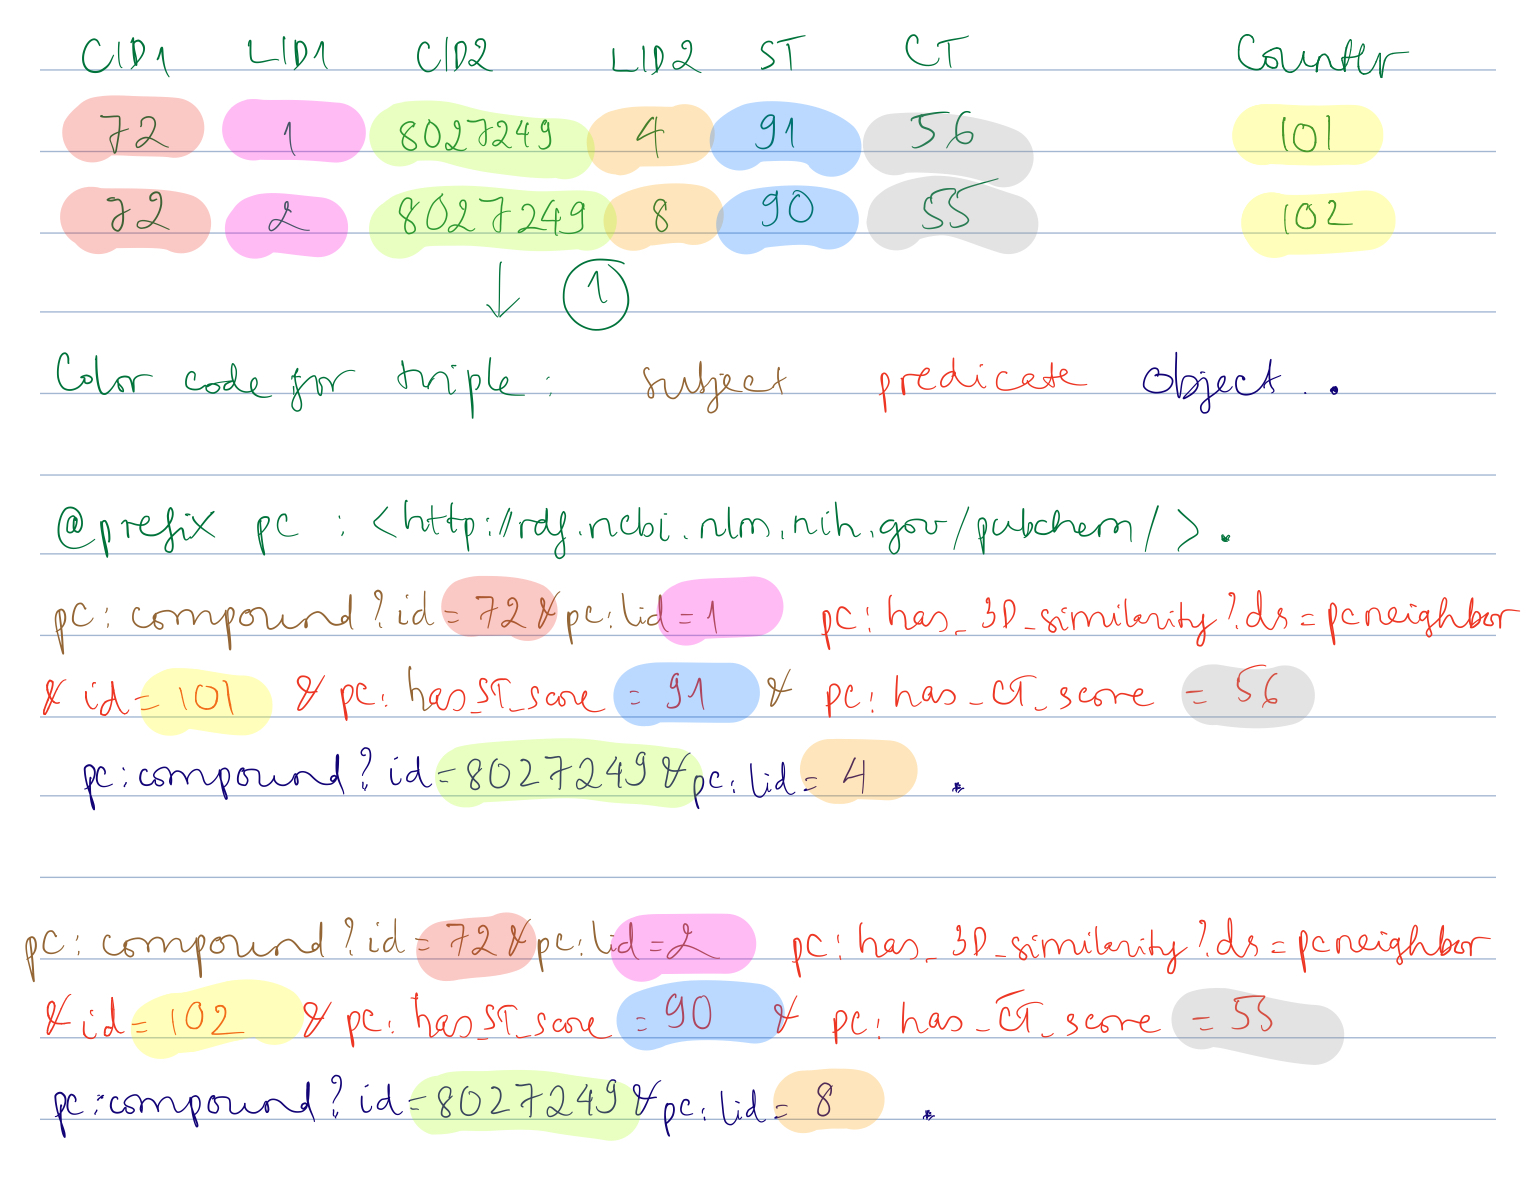 CID1 LID1 CID2 LID2 ST CT Counter
72 1 8027249 4 91 56 101
72 2 8027249 8 90 55 102
↓ 1
Color code for triple: subject predicate object .
@prefix pc : <http://rdf.ncbi.nlm.nih.gov/pubchem/> .
pc:compound?id=72&pc:lid=1 pc:has_3D_similarity?ds=pcneighbor
& id=101 & pc:has_ST_score=91 & pc:has_CT_score=56
pc:compound?id=8027249&pc:lid=4 .
pc:compound?id=72&pc:lid=2 pc:has_3D_similarity?ds=pcneighbor
&id=102 & pc:has_ST_score=90 & pc:has_CT_score=55
pc:compound?id=8027249&pc:lid=8 .